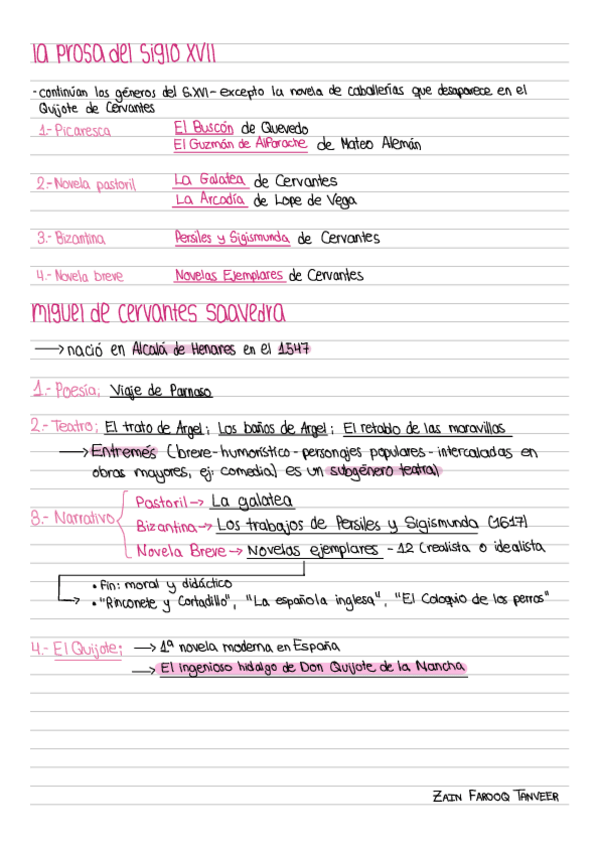 la prosa del siglo XVII
-continúan los géneros del S.XVI - excepto la novela de caballerías que desaparece en el
Quijote de Cervantes
1.- Picaresca El Buscón de Quevedo
El Guzmán de Alfarache de Mateo Alemán
2.- Novela pastoril La Galatea de Cervantes
La Arcadia de Lope de Vega
3.- Bizantina Persiles y Sigismunda de Cervantes
4.- Novela breve Novelas Ejemplares de Cervantes
miguel de cervantes saavedra
→ nació en Alcalá de Henares en el 1547
1.- Poesía; Viaje de Parnaso
2.- Teatro; El trato de Argel; Los baños de Argel; El retablo de las maravillas
→ Entremés (breve - humorístico - personajes populares - intercaladas en
obras mayores, ej: comedia) es un subgénero teatral
3.- Narrativo Pastoril → La galatea
Bizantina → Los trabajos de Persiles y Sigismunda (1617)
Novela Breve → Novelas ejemplares - 12 (realista o idealista
• Fin: moral y didáctico
• "Rinconete y Cortadillo", "La española inglesa", "El Coloquio de los perros"
4.- El Quijote; → 1ª novela moderna en España
→ El ingenioso hidalgo de Don Quijote de la Mancha
ZAIN FAROOQ TANVEER